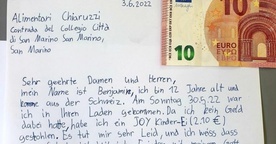 3.6.2022
Alimentari Chiaruzzi
Contrada del Collegio Città
di San Marino San Marino,
San Marino
10
EURO
10
Sehr geehrte Damen und Herren,
mein Name ist Benjamin, ich bin 12 Jahre alt und
komme aus der Schweiz. Am Sonntag 30.5.22 war
ich in Ihren Laden gekommen. Da ich kein Geld
dabei hatte, habe ich ein JOY Kinder-Ei (2.10€)
gestohlen. Es tut mir sehr Leid, und ich weiss dass